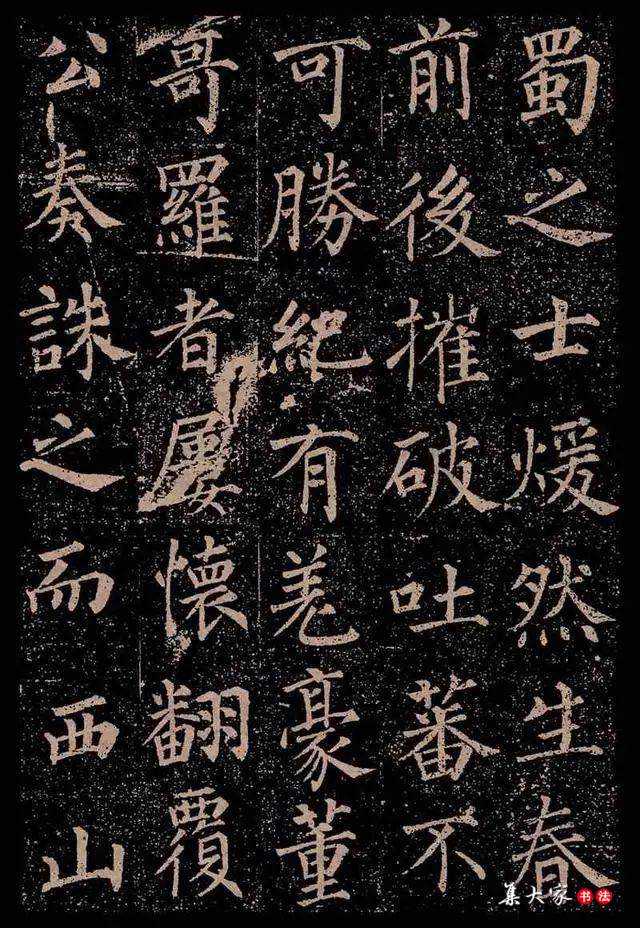 蜀之士煖然生春
前後摧破吐蕃不
可勝紀有羌豪董
哥羅者屢懷翻覆
公奏誅之而西山
集大家书法